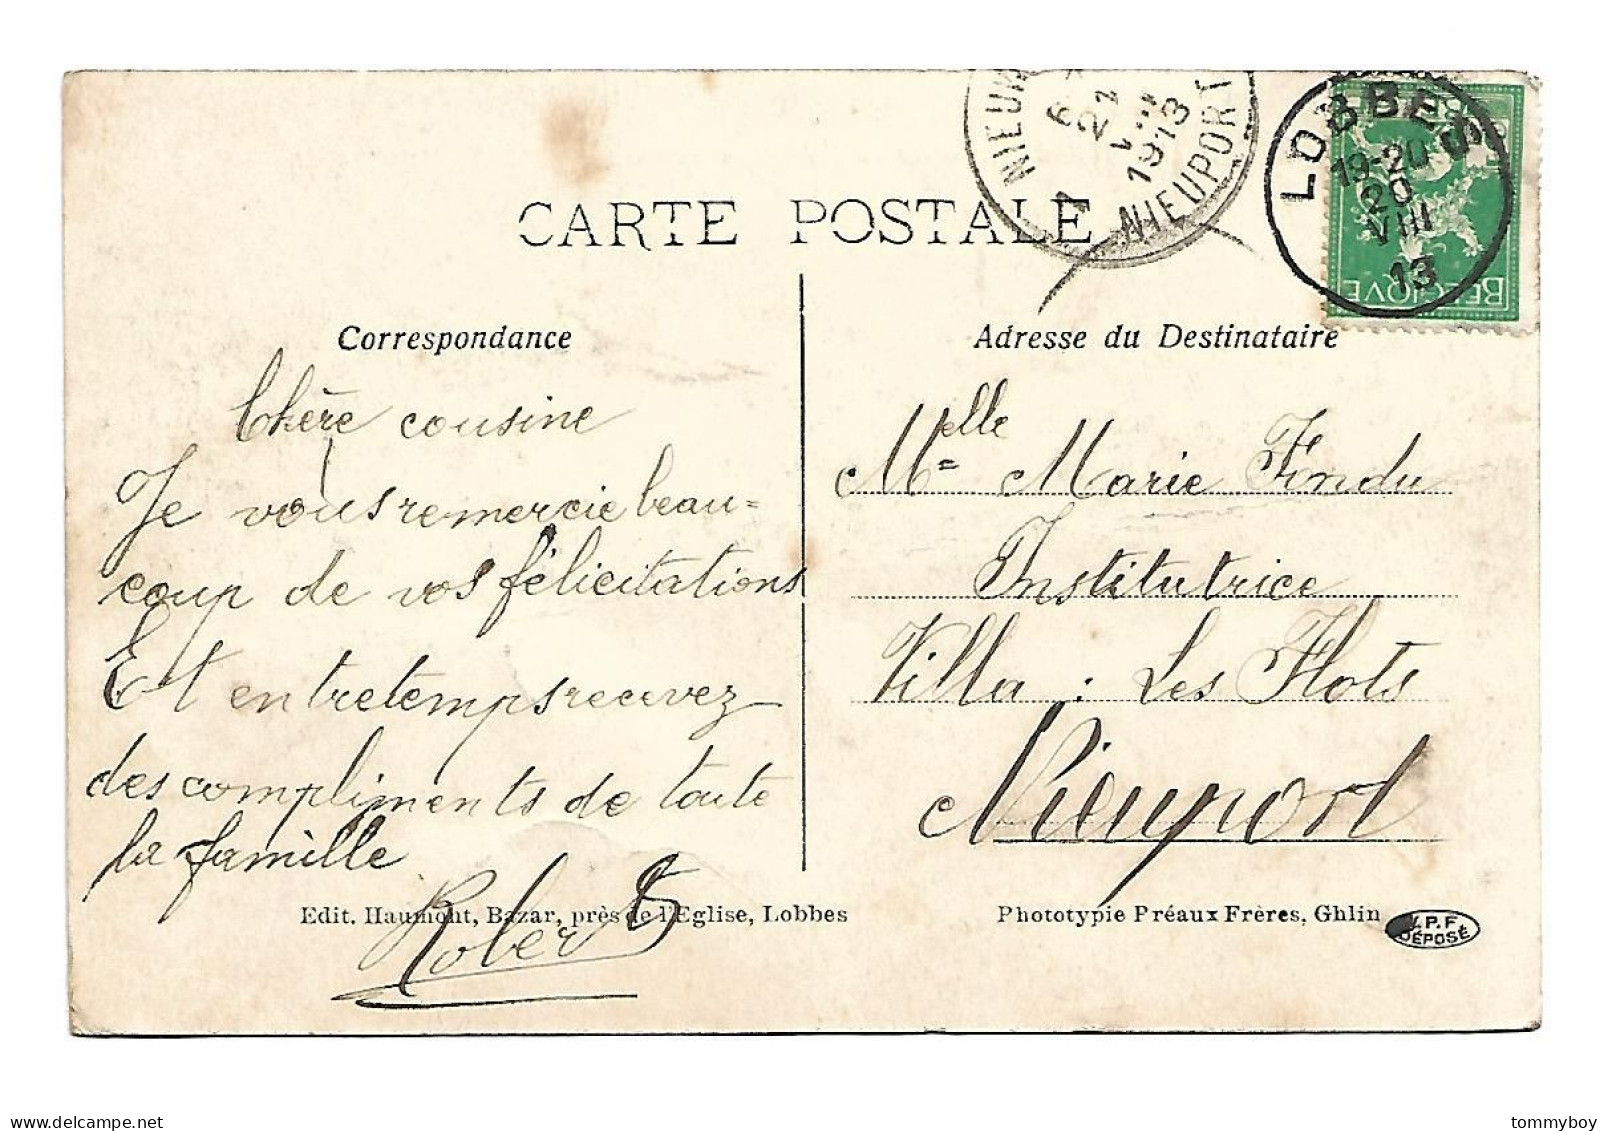 CARTE POSTALE
NIEUPORT
1913
LOBBES
19-20
20
VIII
13
BELGIQVE
Correspondance
Chère cousine
Je vous remercie beau=
coup de vos félicitations
Et entretemps recevez
des compliments de toute
la famille
Robert
Adresse du Destinataire
Melle Marie Fondu
Institutrice
Villa : Les Flots
Nieuport
Edit. Haumont, Bazar, près de l'Eglise, Lobbes
Phototypie Préaux Frères, Ghlin
P. F.
DÉPOSÉ
www.delcampe.net
tommyboy